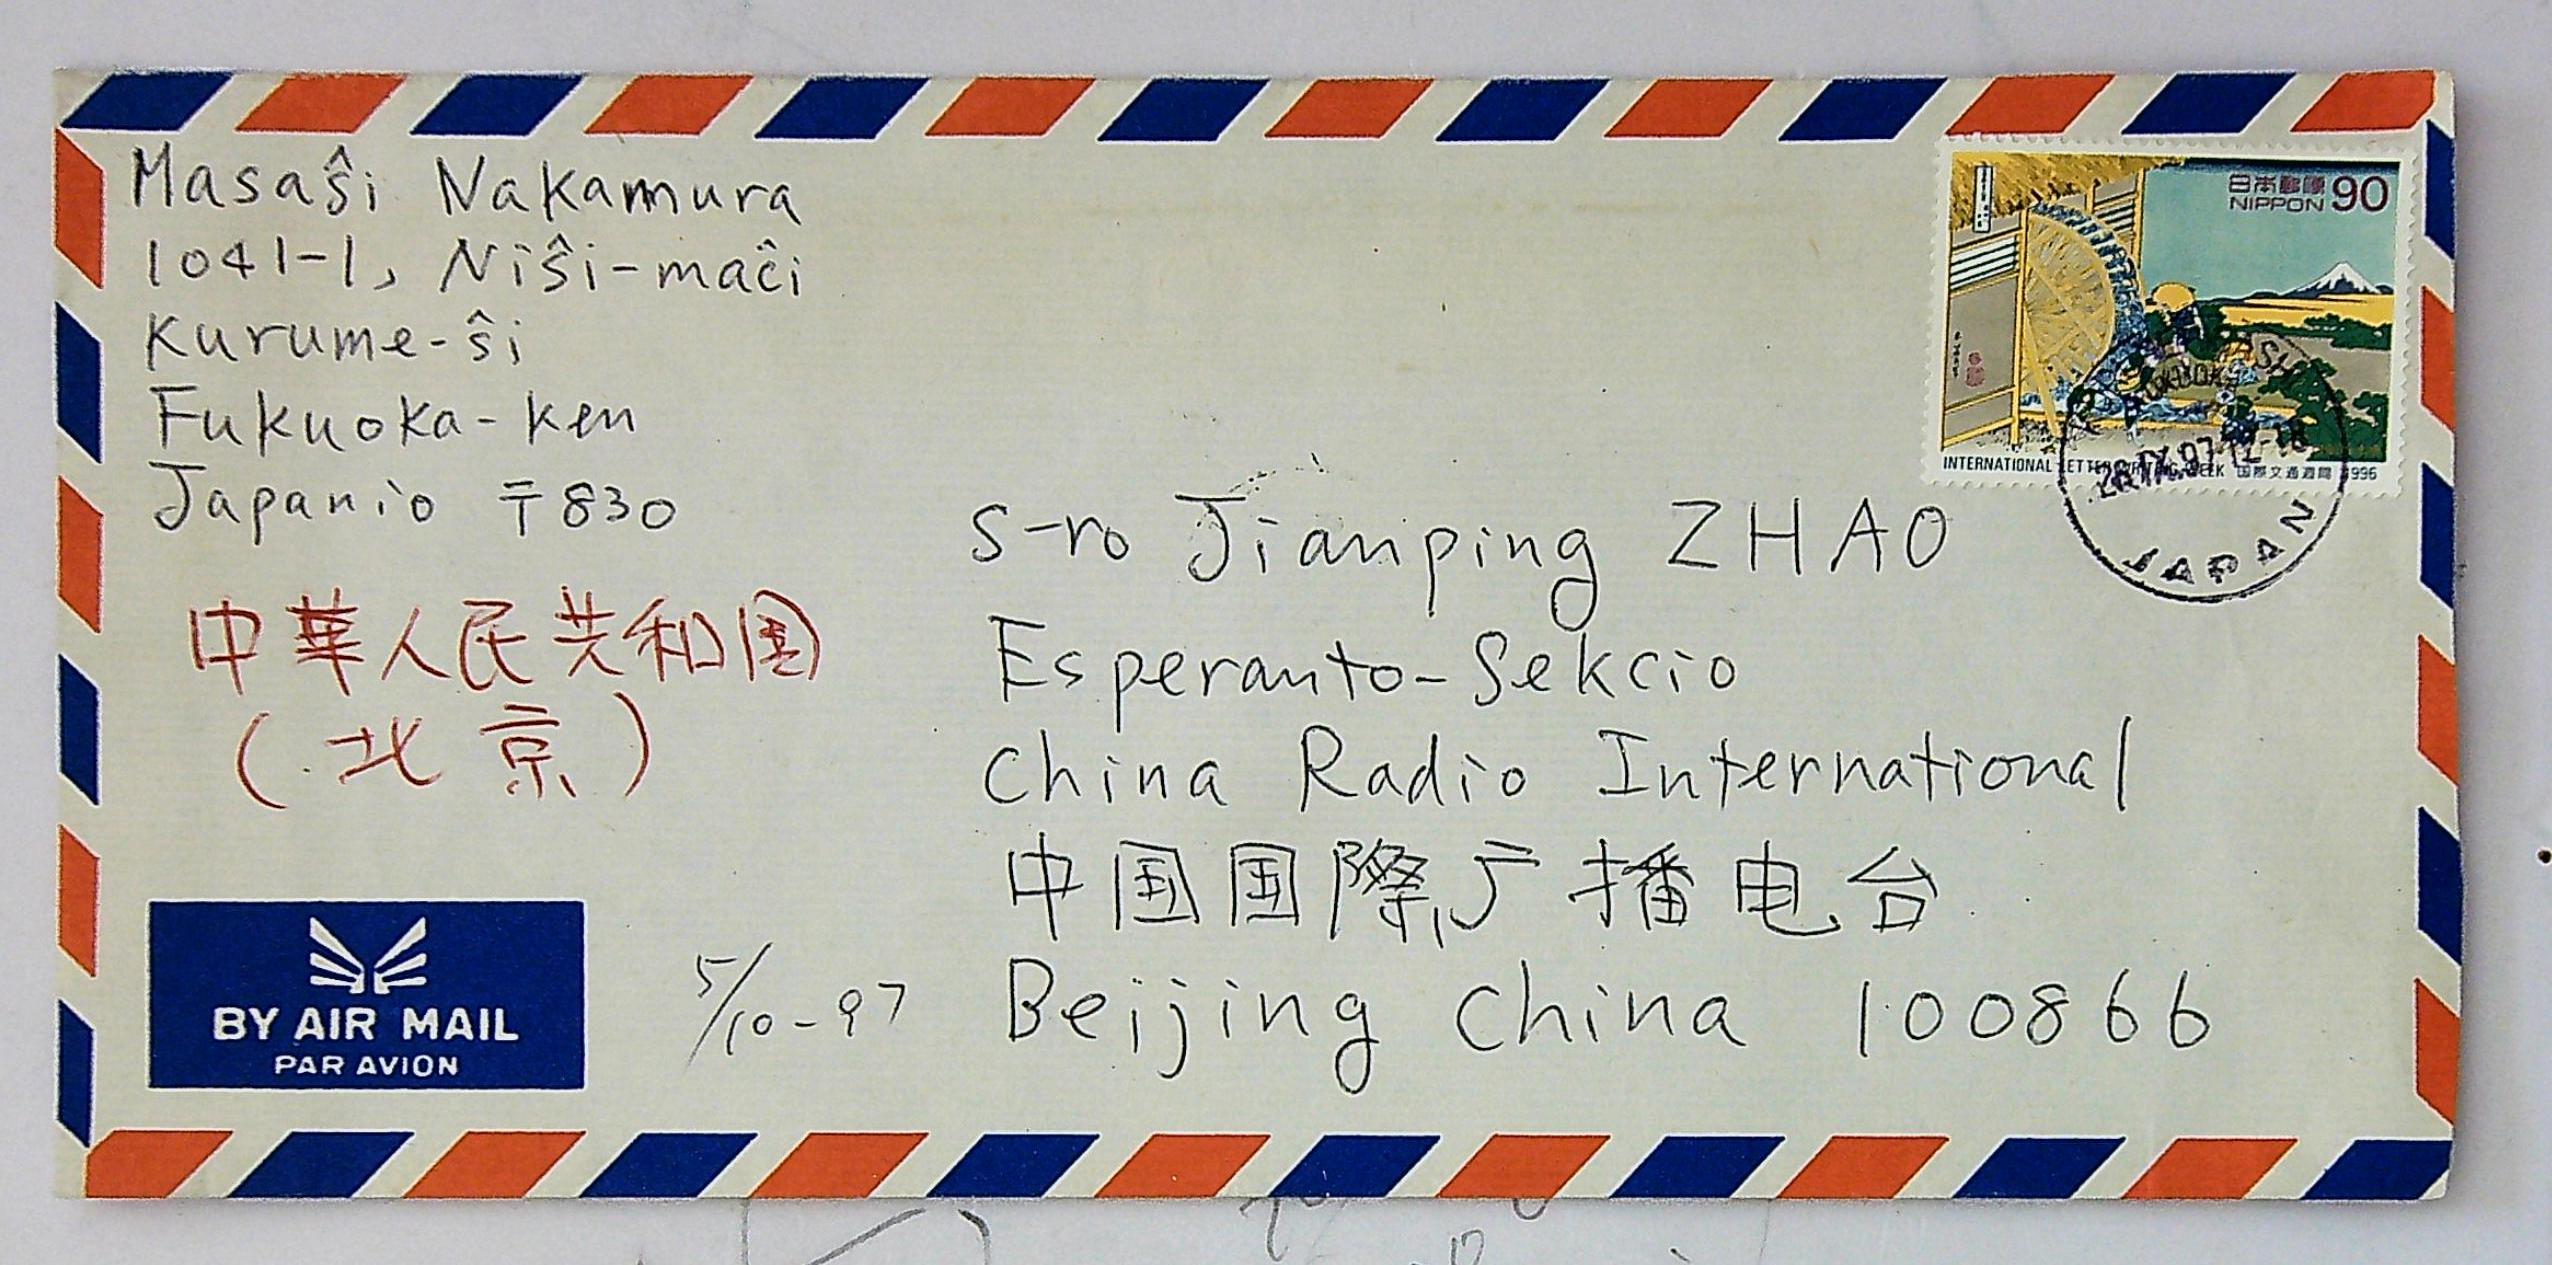 Masaŝi Nakamura
1041-1, Niŝi-maĉi
Kurume-ŝi
Fukuoka-ken
Japanio 〒830
中華人民共和国
(北京)
BY AIR MAIL
PAR AVION
日本郵便
NIPPON 90
INTERNATIONAL LETTER WRITING WEEK 国際文通週間 1996
FUKUOKA
JAPAN
S-ro Jianping ZHAO
Esperanto-Sekcio
China Radio International
中国国際广播电台
5/10-97
Beijing China 100866